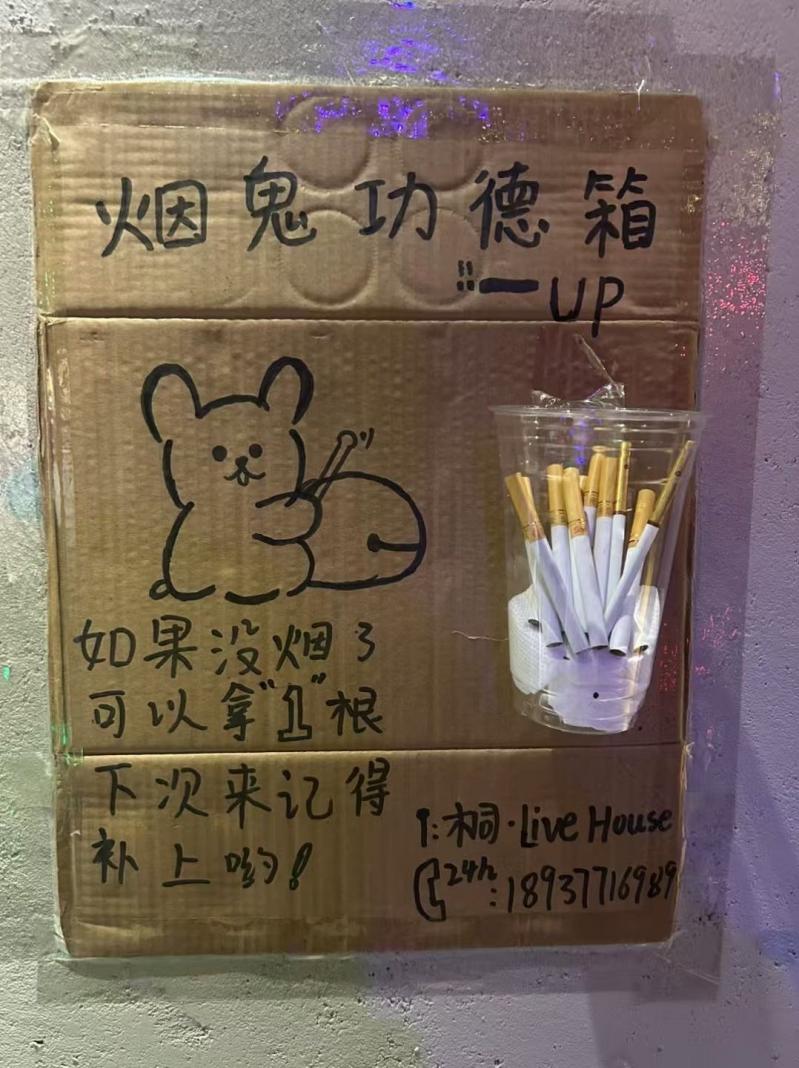 烟鬼功德箱
——UP
如果没烟了
可以拿"1"根
下次来记得
补上哟!
桐·Live House
24h:18937716989